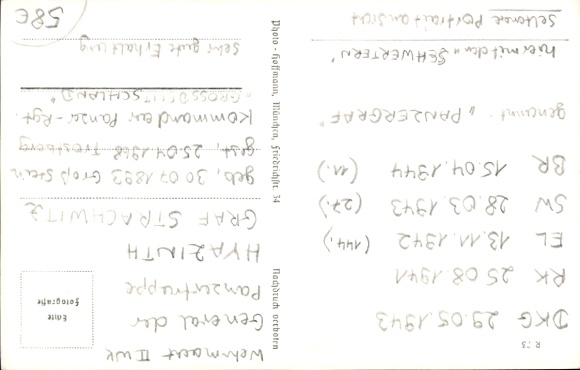 R 73
DKG 29.05.1943
RK 25 08.1941
EL 13.11.1942 (144.)
SW 28.03.1943 (27.)
BR 15.04.1944 (11.)
genannt "PANZERGRAF"
hier mit den "SCHWERTERN"
seltenere Portraitansicht
Photo-Hoffmann, München, Friedrichstr. 34
Nachdruck verboten
Echte
Fotografie
Wehrmacht II WK
General der
Panzertruppe
HYAZINTH
GRAF STRACHWITZ
geb. 30 07 1893 Groß Stein
gest. 25.04.1968 Trostberg
Kommandeur Panzer-Rgt.
"GROSSDEUTSCHLAND"
sehr gute Erhaltung
58€